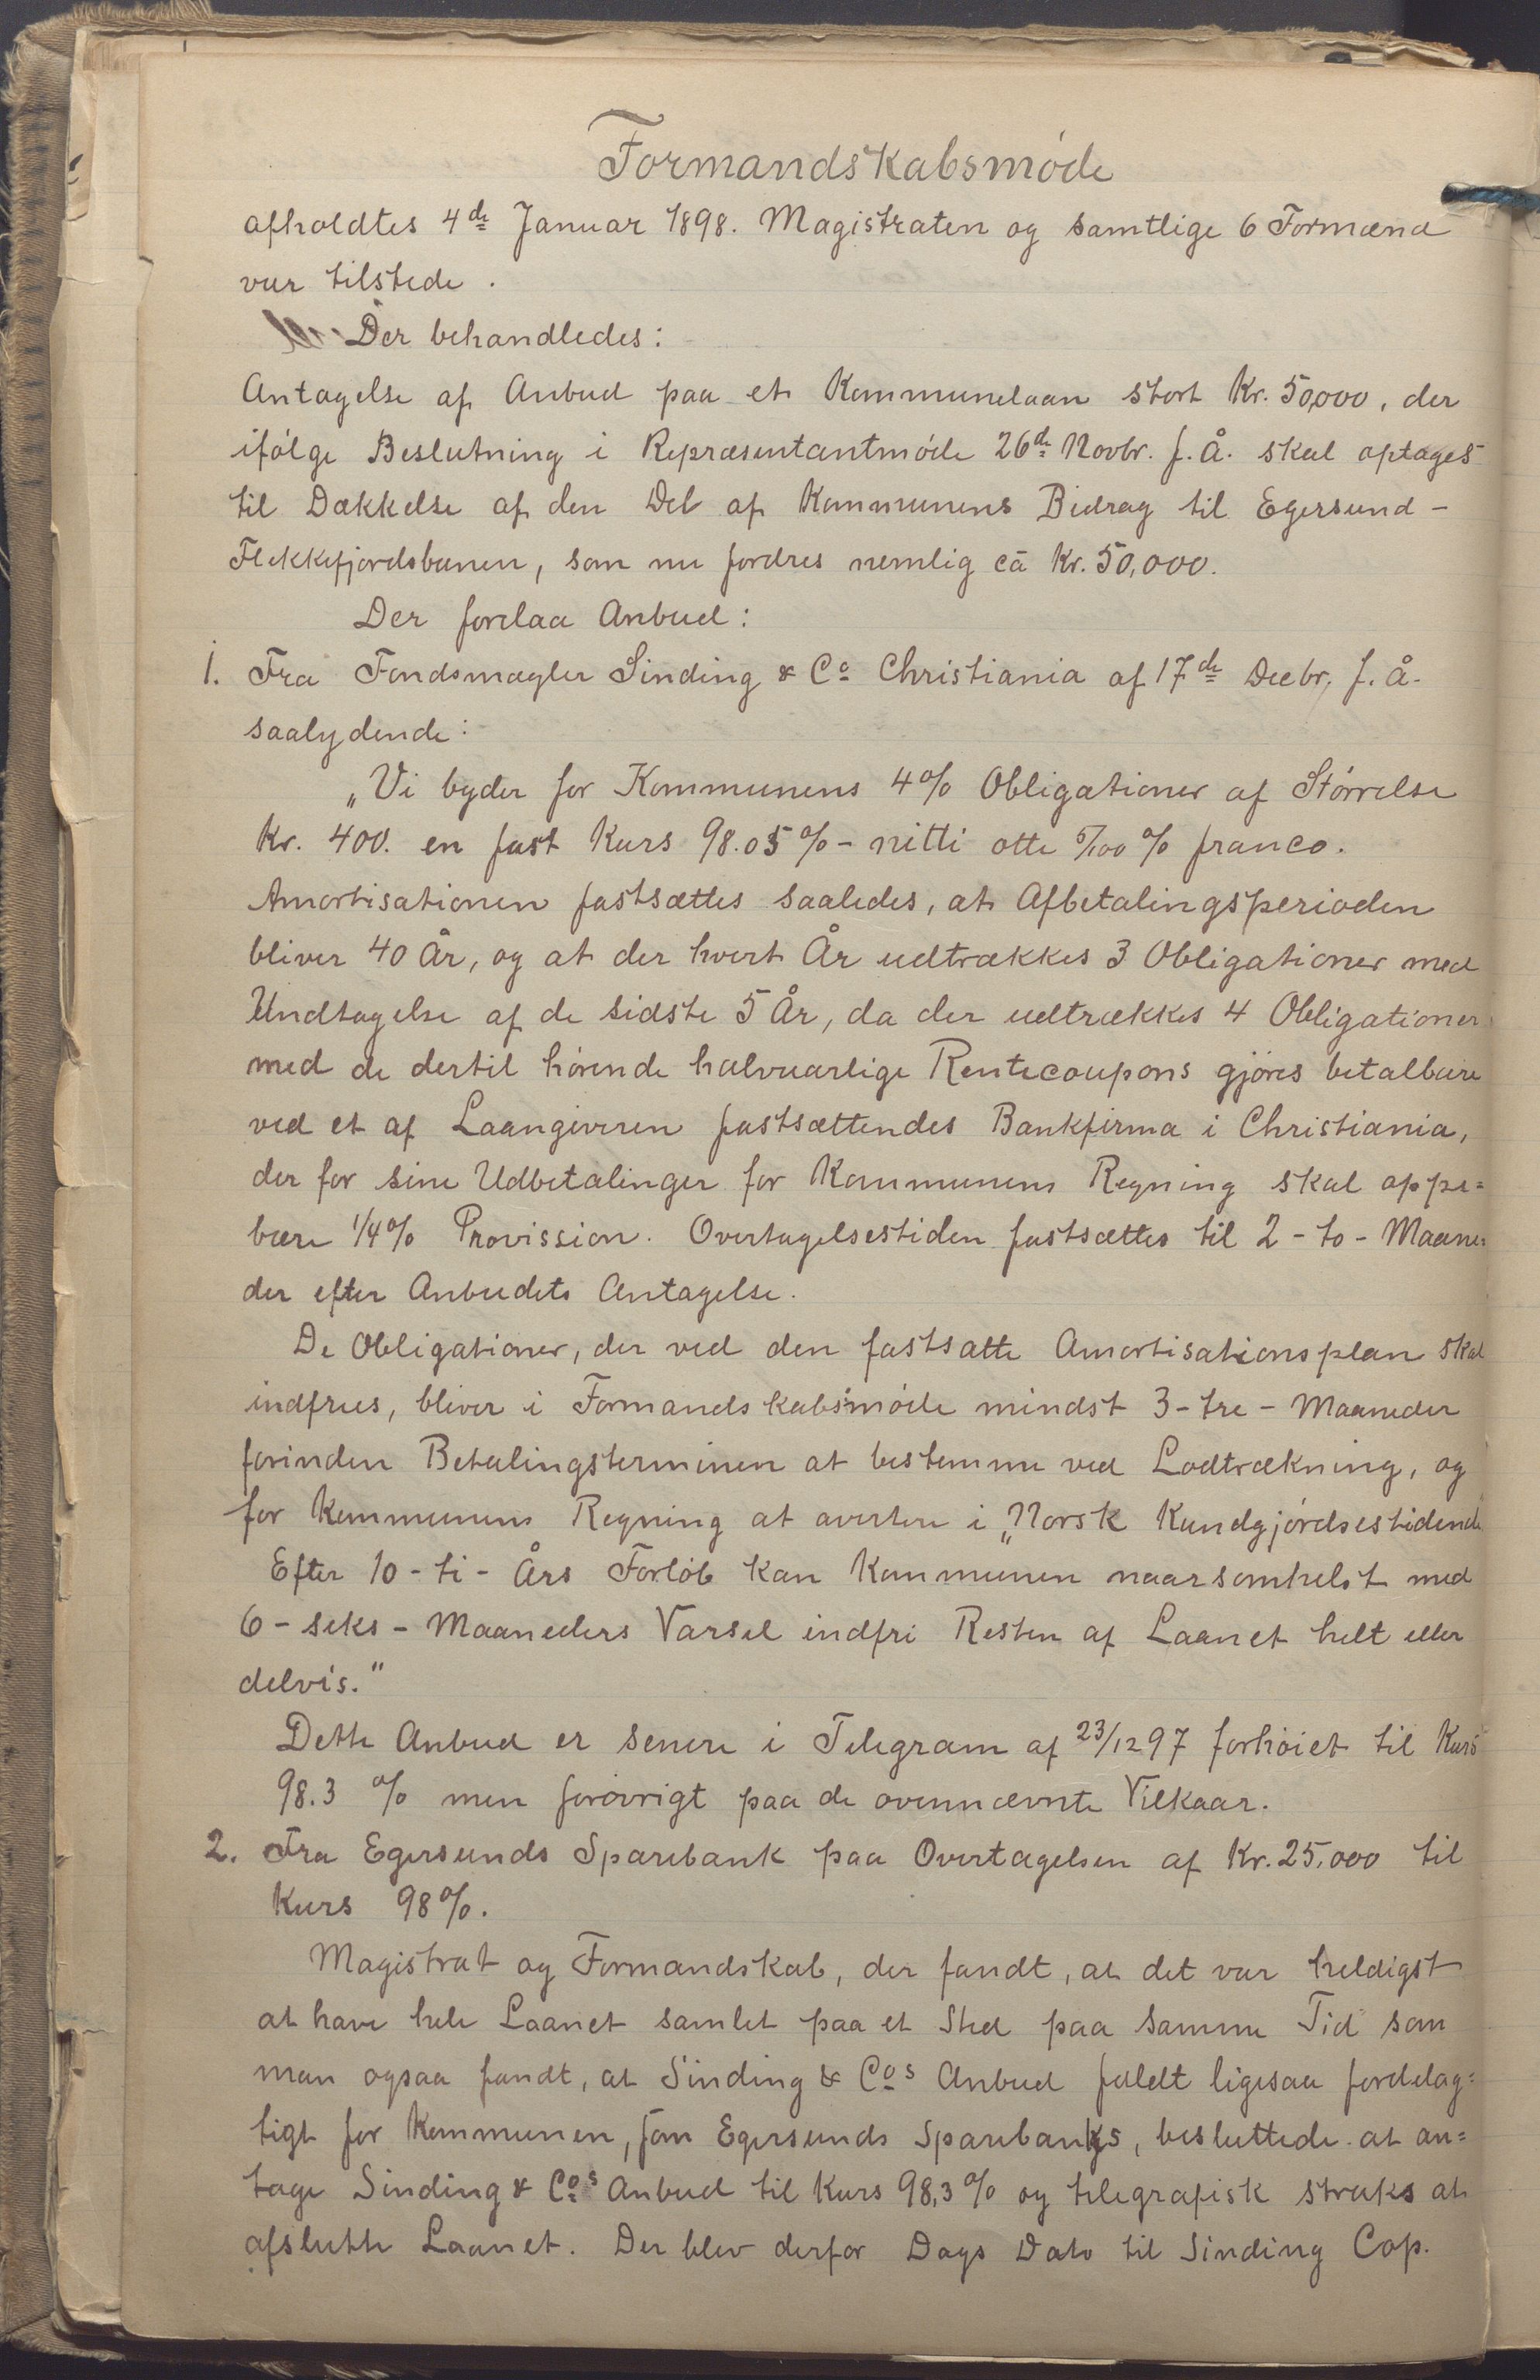 Formandskabsmøde
afholdtes 4de Januar 1898. Magistraten og samtlige 6 Formænd
var tilstede.
Der behandledes:
Antagelse af Anbud paa et Kommunelaan stort Kr. 50,000, der
ifølge Beslutning i Repræsentantmøde 26de Novbr. f. Å. skal optages
til Dækkelse af den Del af Kommunens Bidrag til Egersund-
Flekkefjordsbanen, som nu fordres nemlig ca Kr. 50,000.
Der forelaa Anbud:
1. Fra Fondsmægler Sinding & Co Christiania af 17de Decbr. f. Å.
saalydende:
„Vi byder for Kommunens 4% Obligationer af Størrelse
Kr. 400. en fast Kurs 98.05% - nitti otte 5/100 % franco.
Amortisationen fastsættes saaledes, at Afbetalingsperioden
bliver 40 År, og at der hvert År udtrækkes 3 Obligationer med
Undtagelse af de sidste 5 År, da der udtrækkes 4 Obligationer
med de dertil hørende halvaarlige Rentecoupons gjøres betalbare
ved et af Laangiveren fastsættendes Bankfirma i Christiania,
der for sine Udbetalinger for Kommunens Regning skal oppe=
bære 1/4% Provission. Overtagelsestiden fastsættes til 2 - to - Maane=
der efter Anbudets Antagelse.
De Obligationer, der ved den fastsatte Amortisationsplan skal
indfries, bliver i Formandskabsmøde mindst 3 - tre - Maaneder
forinden Betalingsterminen at bestemme ved Lodtrækning, og
for Kommunens Regning at avertere i „Norsk Kundgjørelsestidende
Efter 10 - ti - Års Forløb kan Kommunen naarsomhelst med
6 - seks - Maaneders Varsel indfri Resten af Laanet helt eller
delvis."
Dette Anbud er senere i Telegram af 23/12 97 forhøiet til Kurs
98.3 % men forøvrigt paa de ovennævnte Vilkaar.
2. Fra Egersunds Sparebank paa Overtagelsen af Kr. 25,000 til
Kurs 98%.
Magistrat og Formandskab, der fandt, at det var heldigst
at have hele Laanet samlet paa et Sted paa samme Tid som
man ogsaa fandt, at Sinding & Cos Anbud faldt ligesaa fordelag=
tigt for Kommunen, som Egersunds Sparebanks, besluttede at an=
tage Sinding & Cos Anbud til Kurs 98,3% og telegrafisk straks at
afslutte Laanet. Der blev derfor Dags Dato til Sinding Cop.